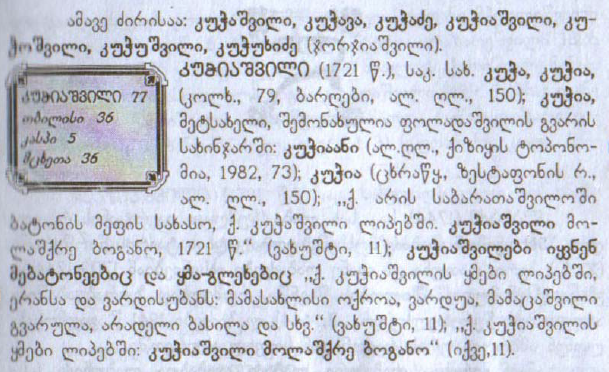 ამავე ძირისაა: კუჭაშვილი, კუჭავა, კუჭაძე, კუჭიაშვილი, კუ-
ჭოშვილი, კუჭუშვილი, კუჭუხიძე (ჯორჯიაშვილი).
ᲙᲣᲭᲘᲐᲨᲕᲘᲚᲘ (1721 წ.), საკ. სახ. კუჭა, კუჭია,
(კოლხ., 79, ბარღები, ალ. ღლ., 150); კუჭია,
მეტსახელი, შემონახულია ფოლადაშვილის გვარის
სახინჯარში: კუჭიაანი (ალ.ღლ., ქიზიყის ტოპონო-
მია, 1982, 73); კუჭია (ცხრაწყ., ზესტაფონის რ.,
ალ. ღლ., 150); „ქ. არის საბარათაშვილოში
ბატონის მეფის სახასო, ქ. კუჭაშვილი ლიპებში. კუჭიაშვილი მო-
ლაშქრე ბოგანო, 1721 წ.“ (ვახუშტი, 11); კუჭიაშვილები იყვნენ
მებატონეებიც და ყმა-გლეხებიც „ქ. კუჭიაშვილის ყმები ლიპებში,
ერანსა და ვარდისუბანს: მამასახლისი ოქროა, ვარდუა, მამაცაშვილი
გვარულა, არადელი ბასილა და სხვ.“ (ვახუშტი, 11); „ქ. კუჭიაშვილის
ყმები ლიპებში: კუჭიაშვილი მოლაშქრე ბოგანო“ (იქვე,11).
ᲙᲣᲭᲘᲐᲨᲕᲘᲚᲘ 77
თბილისი 36
კასპი 5
მცხეთა 36